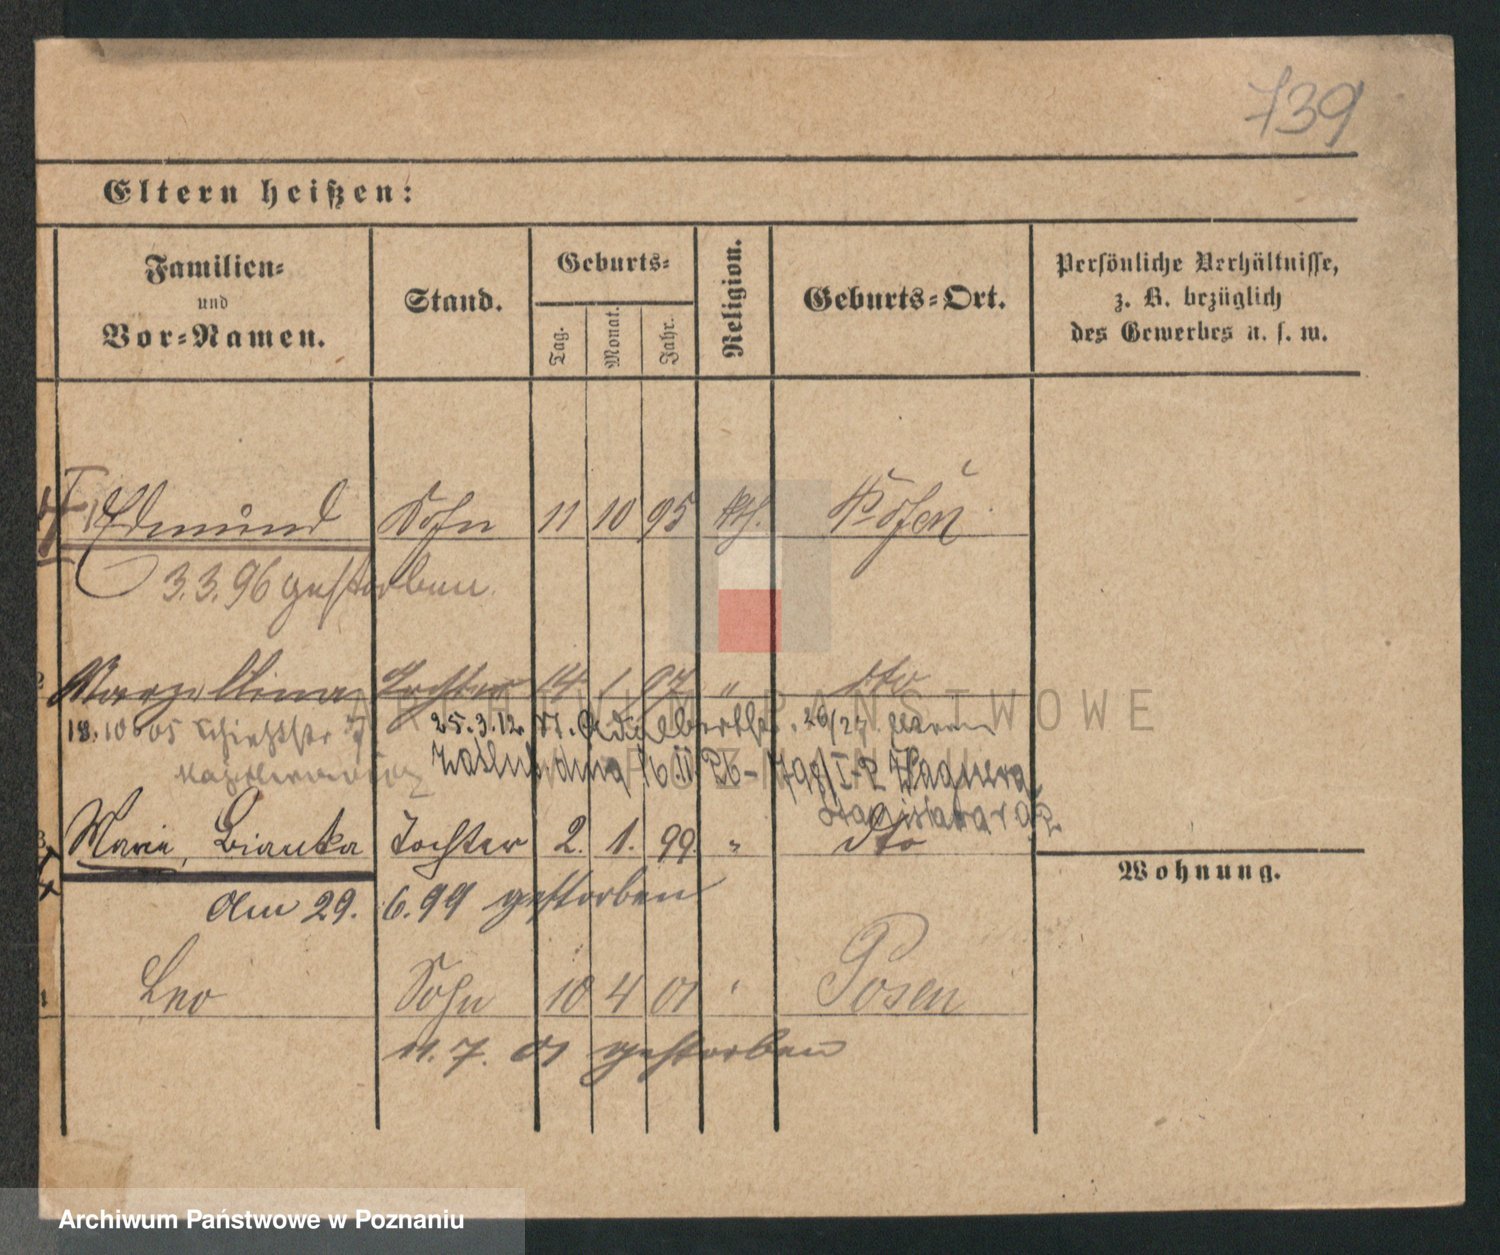 739
Eltern heißen:
Familien-
und
Vor-Namen.
Stand.
Geburts-
Tag.
Monat.
Jahr.
Religion.
Geburts-Ort.
Persönliche Verhältnisse,
z. B. bezüglich
des Gewerbes u. s. w.
Edmund Sohn 11 10 95 kth. Posen
3.3.96 gestorben
Marzellina Tochter 14 1 97 " dto
18.10 05
25.3.12. St. Adalbertstr. 26/27
I-2 Wagnera
Stanisława
Marie, Bianka Tochter 2. 1. 99 " dto
Wohnung.
Am 29. 6.99 gestorben
Leo Sohn 10 4 01 " Posen
11. 7. 01 gestorben
ARCHIWUM PAŃSTWOWE
W POZNANIU
Archiwum Państwowe w Poznaniu